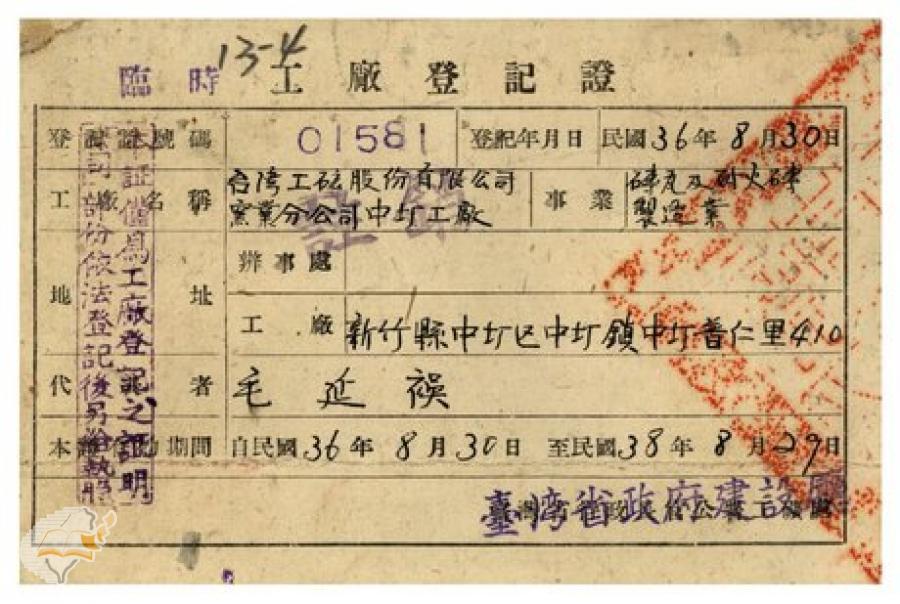 13-4
臨時工廠登記證
登記證號碼 01581 登記年月日 民國36年8月30日
工廠名稱 台湾工砿股份有限公司 事業 磚瓦及耐火磚
窯業分公司中圵工廠 製造業
註銷
地址 辦事處
工廠 新竹縣中圵区中圵鎮中圵普仁里410
代者 毛延禩
本證有効期間 自民國36年8月30日 至民國38年8月29日
臺湾省政府建設廳
本証僅爲工廠登記之証明
司部份依法登記後另給執照